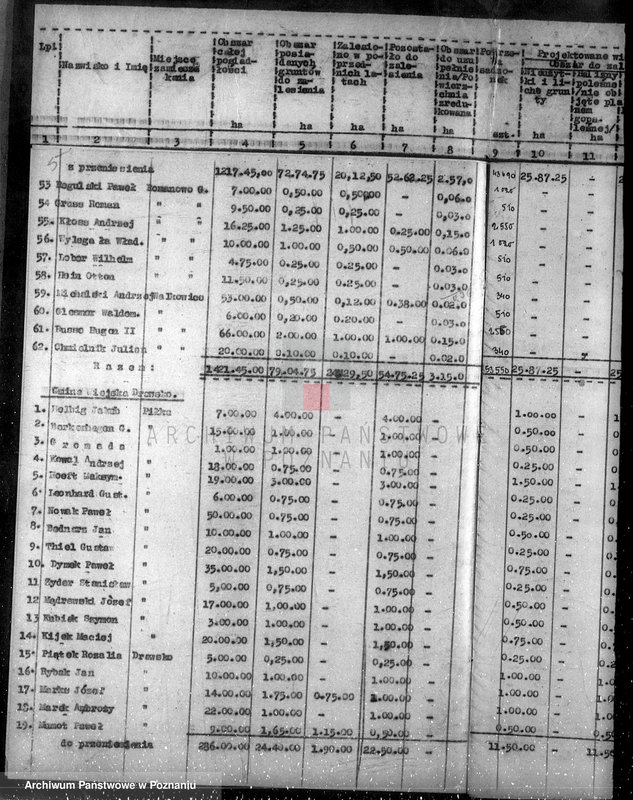 Lp. Nazwisko i Imię Miejsce zamieszkania Obszar całej posiadłości Obszar posiadanych gruntów do zalesienia Zalesiono w poprzednich latach Pozostało do zalesienia Obszar do uzupełnienia/Powierzchnia zredukowana
ha ha ha ha ha szt. ha ha
1 2 3 4 5 6 7 8 9 10 11
z przeniesienia 1217.45,00 72.74.75 20,12,50 52.62.25 2.57,0 25.87.25 -
53 Rogulski Paweł Romanowo G. 7.00.00 0,50.00 0,50.00 - 0,06.0 -
54 Gross Roman " " 9.50.00 0,25.00 0,25.00 - 0,03.0 510 -
55. Kłoss Andrzej " " 16.25.00 1.25.00 1.00.00 0,25.00 0,15.0 1.550 -
56. Wylegała Wład. " " 10.00.00 1.00.00 0,50.00 0,50.00 0.06.0 -
57. Lobor Wilhelm " 4.75.00 0.25.00 0.25.00 - 0.03.0 510 -
58. Hein Otton " 11.50.00 0,25.00 0.25.00 - 0.03.0 510 -
59. Michalski Andrzej Walkowice 53.00.00 0,50.00 0,12.00 0.38.00 0.02.0 340 -
60. Gleszor Waldem. " 6.00.00 0,20.00 0.20.00 - 0.03.0 510 -
61. Busse Eugen II " " 66.00.00 2.00.00 1.00.00 1.00.00 0.15.0 -
62. Chmielnik Julian " 20.00.00 0.10.00 0.10.00 - 0.02.0 340 -
Razem: 1421.45.00 79.04.75 24.29,50 54.75.25 3.15.0 53,550 25.87.25 -
Gmina Wiejska Drawsko.
1. Helbig Jakób Piłka 7.00.00 4.00.00 - 4.00.00 - 1.00.00 -
2. G. " 15.00.00 1.00.00 - 1.00.00 - 0.50.00 -
3. Gromada " 1.00.00 1.00.00 - 1.00.00 - 0.50.00 -
4. Kowal Andrzej " 18.00.00 0.75.00 - 0.75.00 - 0.25.00 -
5. Hoeft Maksym. " 19.00.00 3.00.00 - 3.00.00 - 1.50.00 -
6. Leonhard Gust. " 6.00.00 0.75.00 - 0.75.00 - 0.25.00 -
7. Nowak Paweł " 50.00.00 0.75.00 - 0.75.00 - 0.25.00 -
8. Bednarz Jan " 10.00.00 1.00.00 - 1.00.00 - 0.50.00 -
9. Thiel Gustaw " 20.00.00 0.75.00 - 0.75.00 - 0.25.00 -
10. Dymek Paweł " 35.00.00 1,50.00 - 1,50.00 - 0.75.00 -
11 Zyder Stanisław " 5,00.00 0,75.00 - 0.75.00 - 0.25.00 -
12 Mądrawski Józef " 17.00.00 1,00.00 - 1.00.00 - 0.50.00 -
13 Kubiak Szymon " 3.00.00 1.00.00 - 1.00.00 - 0.50.00 -
14. Kijek Maciej " 20.00.00 1,50.00 - 1,50.00 - 0.75.00 -
15. Piątek Rozalia Drawsko 5.00.00 0,25.00 - 0,25.00 - 0.25.00 -
16. Rybak Jan " 10.00.00 1.00.00 - 1.00.00 - 1.00.00 -
17. Marks Józef " 14.00.00 1.75.00 0.75.00 1.00.00 - 1.00.00 -
18. Marek Ambroży " 22.00.00 1.00.00 - 1.00.00 - 1.00.00 -
19. Mamot Paweł " 9.00.00 1,65.00 1.15.00 0,50.00 - 0.50.00 -
do przeniesienia 286.00.00 24.40.00 1.90.00 22.50.00 - 11.50.00 -
ARCHIWUM PAŃSTWOWE
Archiwum Państwowe w Poznaniu